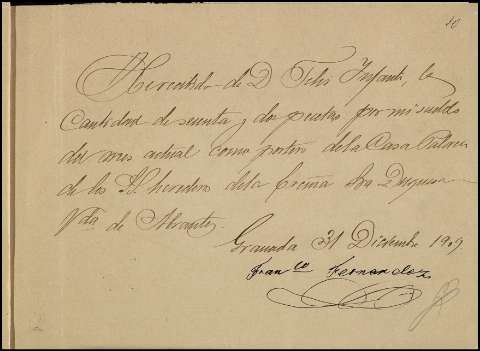 40
He recibido de D Felix Infante, la
Cantidad de sesenta y dos pesetas por mi sueldo
del mes actual como portero de la Casa Palacio
de los S.S. herederos de la Excma Sra Duquesa
Vda de Abrantes.
Granada 31 Diciembre 1909
Franco Fernandez